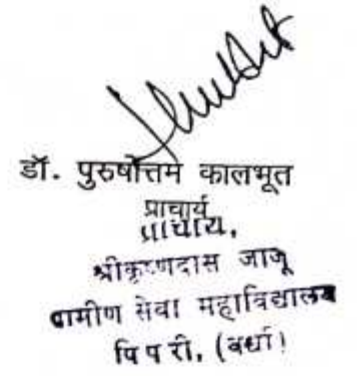 डॉ. पुरुषोत्तम कालभूत
प्राचार्य
प्राचार्य,
श्रीकृष्णदास जाजू
ग्रामीण सेवा महाविद्यालय
पिपरी, (वर्धा)